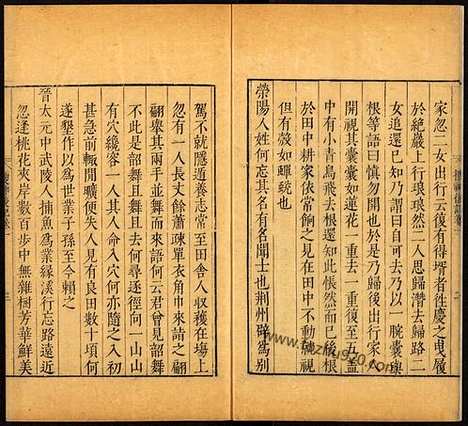 家忽二女出行云復有得壻者往慶之曳履
於絶巖上行琅琅然二人思歸潛去歸路二
女追還已知乃謂曰自可去乃以一腕囊與
根等語曰慎勿開也於是乃歸後出行家人
開視其囊囊如蓮花一重去一重復至五蓋
中有小青鳥飛去根還知此悵然而已後根
於田中耕家依常餉之見在田中不動就視
但有殼如蟬蛻也
滎陽人姓何忘其名有名聞士也荆州辟爲别
駕不就隱遁養志常至田舍人收穫在塲上
忽有一人長丈餘蕭疎單衣角巾來詣之翩
翩舉其兩手並舞而來語何云君曾見韶舞
不此是韶舞且舞且去何尋逐徑向一山山
有穴纔容一人其人命入穴何亦隨之入初
甚急前輒閒曠便失人見有良田數十頃何
遂墾作以爲世業子孫至今賴之
晉太元中武陵人捕魚爲業緣溪行忘路遠近
忽逢桃花夾岸數百步中無雜樹芳華鮮美